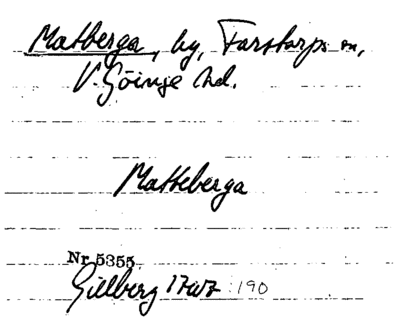 Matberga, by, Farstorps sn,
V. Göinge hd.
Matteberga
Nr 5355
Gillberg 1767 :190